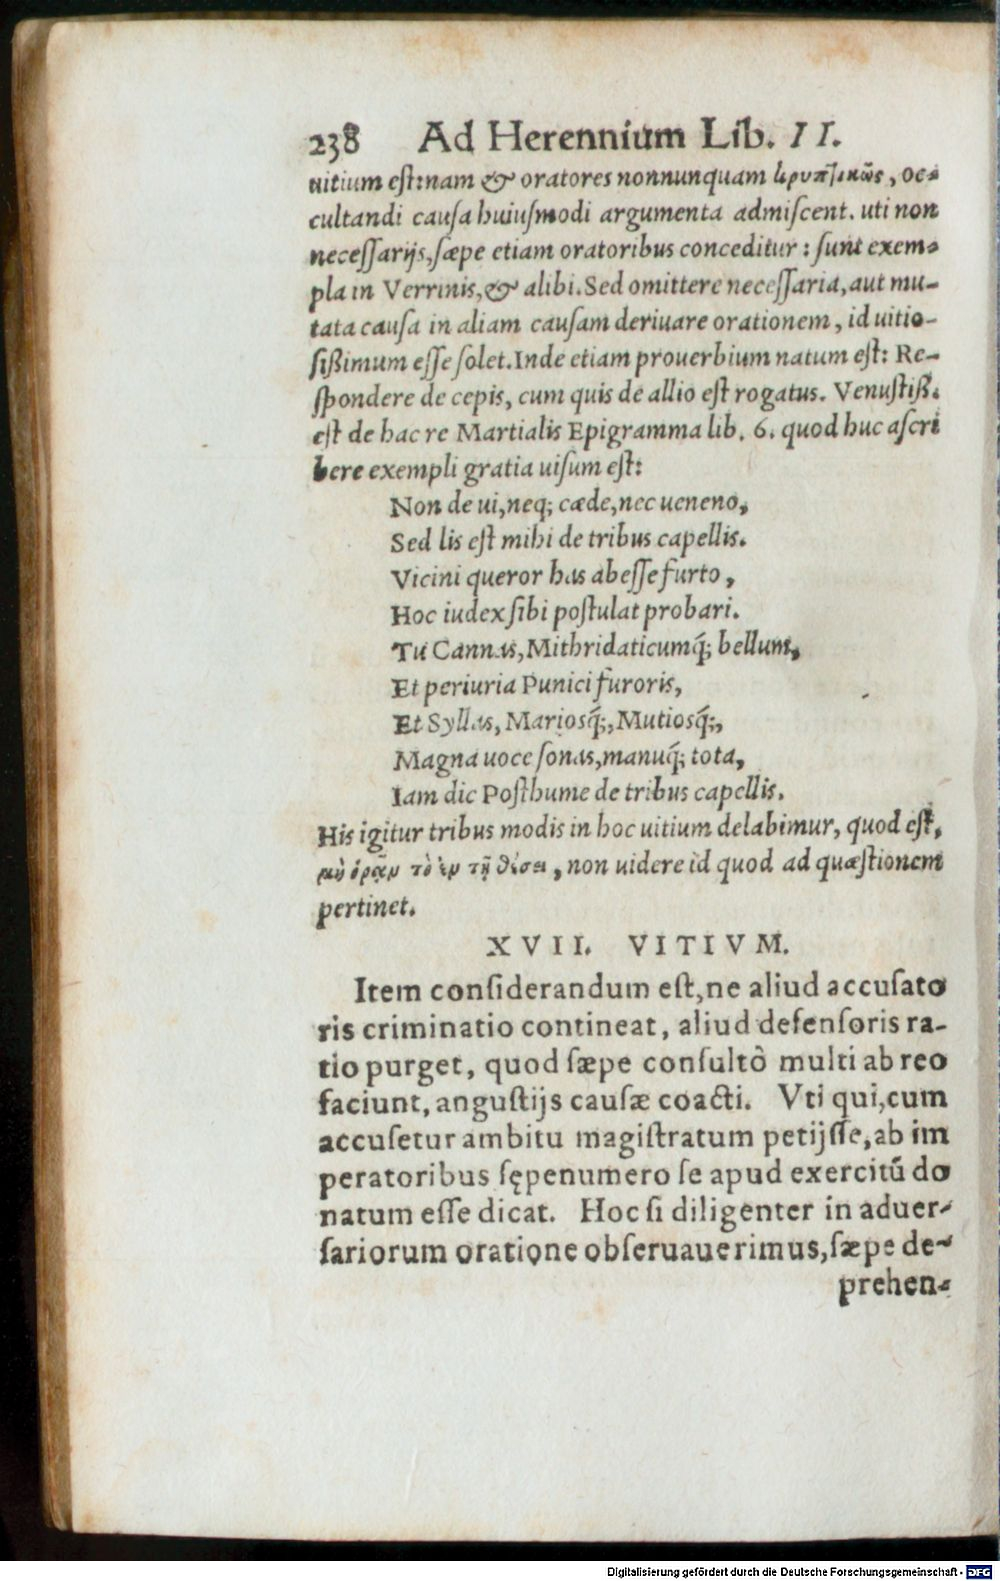 238 Ad Herennium Lib. II.
uitium eſt:nam & oratores nonnunquam κρυπτικῶς, oc-
cultandi cauſa huiuſmodi argumenta admiſcent. uti non
neceſſarijs,ſæpe etiam oratoribus conceditur: ſunt exem-
pla in Verrinis,& alibi.Sed omittere neceſſaria,aut mu-
tata cauſa in aliam cauſam deriuare orationem, id uitio-
ſißimum eſſe ſolet.Inde etiam prouerbium natum eſt: Re-
ſpondere de cepis, cum quis de allio eſt rogatus. Venuſtiß.
eſt de hac re Martialis Epigramma lib. 6. quod huc aſcri
bere exempli gratia uiſum eſt:
Non de ui,neq; cæde,nec ueneno,
Sed lis eſt mihi de tribus capellis.
Vicini queror has abeſſe furto,
Hoc iudex ſibi poſtulat probari.
Tu Cannas,Mithridaticumq́; bellum,
Et periuria Punici furoris,
Et Syllas, Mariosq́;,Mutiosq́;,
Magna uoce ſonas,manuq́; tota,
Iam dic Poſthume de tribus capellis.
His igitur tribus modis in hoc uitium delabimur, quod eſt,
μὴ ὁρᾷν τὸ ἐν τῇ θέσει, non uidere id quod ad quæſtionem
pertinet.
XVII. VITIVM.
Item conſiderandum eſt,ne aliud accuſato
ris criminatio contineat, aliud defenſoris ra-
tio purget, quod ſæpe conſultò multi ab reo
faciunt, anguſtijs cauſæ coacti. Vti qui,cum
accuſetur ambitu magiſtratum petijſſe,ab im
peratoribus ſępenumero ſe apud exercitū do
natum eſſe dicat. Hoc ſi diligenter in aduer-
ſariorum oratione obſeruauerimus,ſæpe de-
prehen-
Digitalisierung gefördert durch die Deutsche Forschungsgemeinschaft - DFG